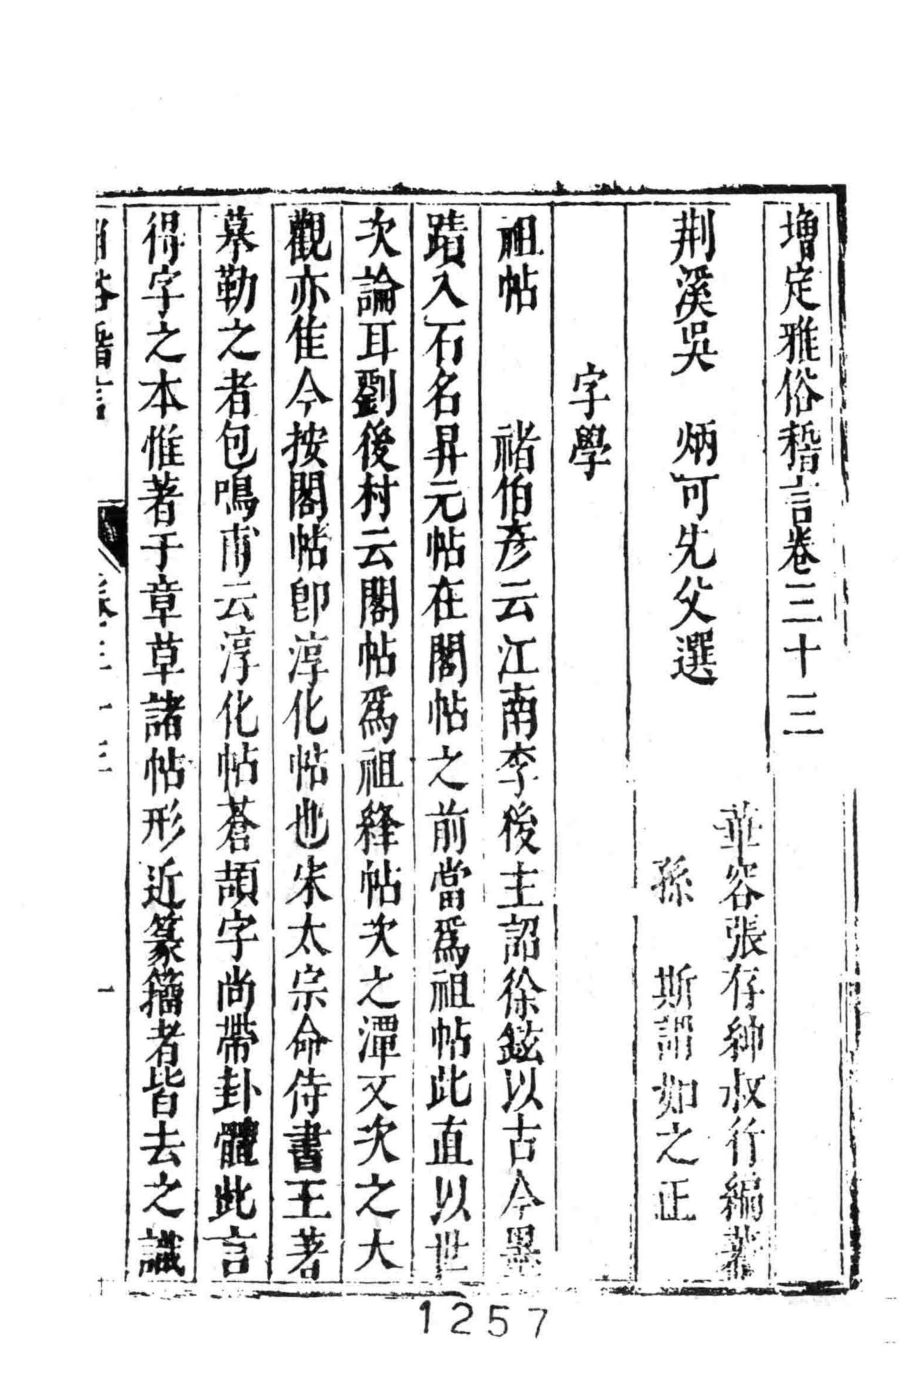 增定雅俗稽言卷三十三
荆溪吳　炳可先父選
華容張存紳叔行編著
孫　斯謌如之正
字學
祖帖　　禇伯彥云江南李後主詔徐鉉以古今墨
蹟入石名昇元帖在閣帖之前當爲祖帖此直以世
次論耳劉後村云閣帖爲祖絳帖次之潭又次之大
觀亦佳今按閣帖卽淳化帖也宋太宗命侍書王著
摹勒之者包鳴甫云淳化帖蒼頡字尚帶卦體此言
得字之本惟著于章草諸帖形近篆籀者皆去之識
雅俗稽言　卷三十三　一
1257